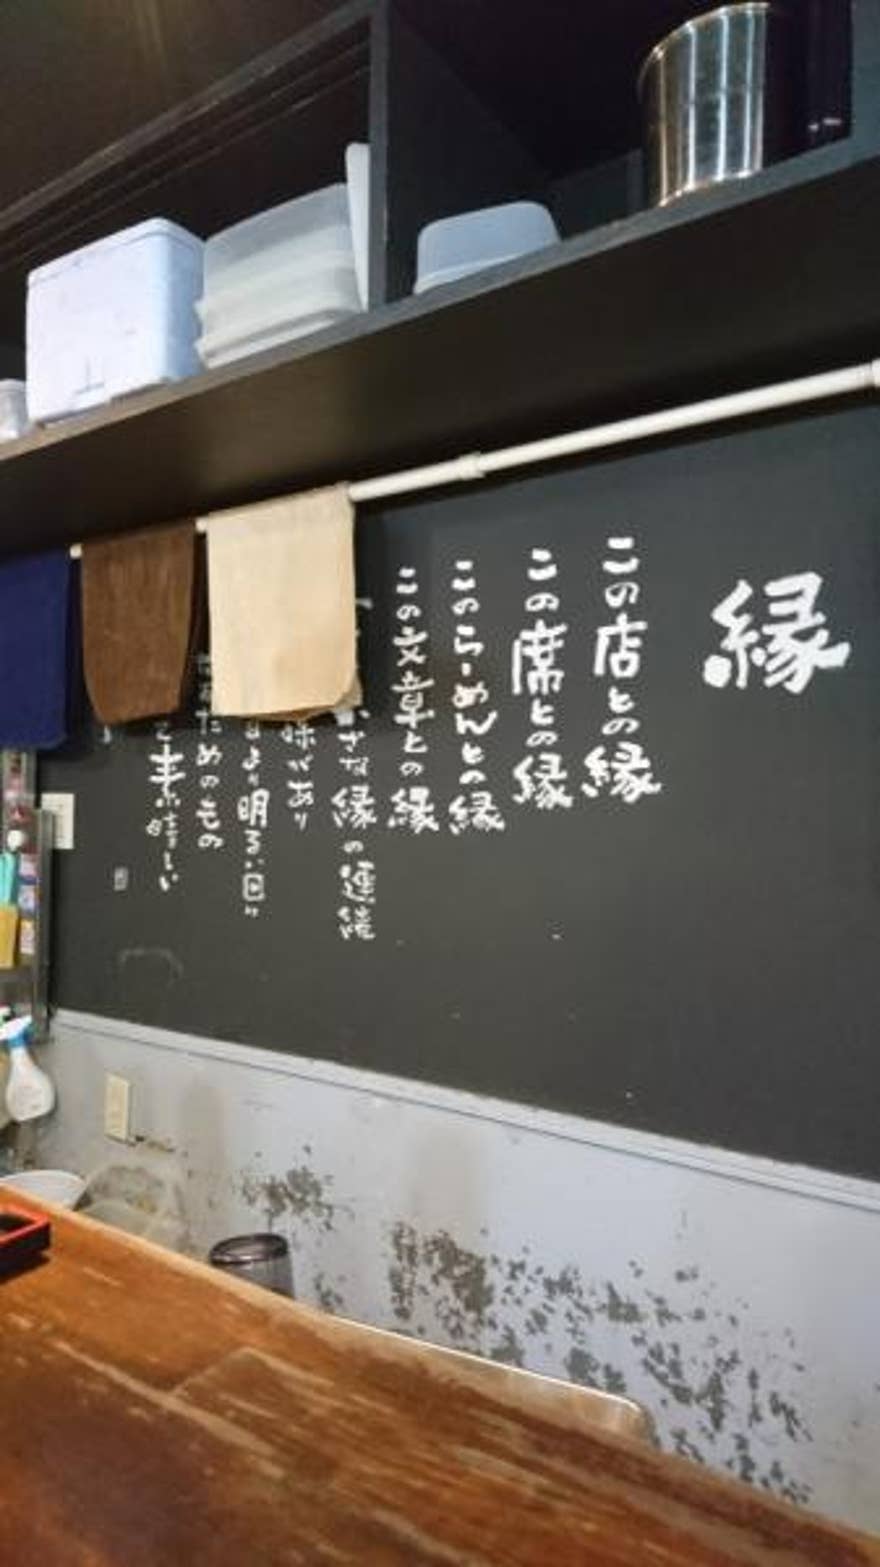 縁
この店との縁
この席との縁
このらーめんとの縁
この文章との縁
さな縁の連続
味があり
より明るい日々
ためのもの
素晴しい